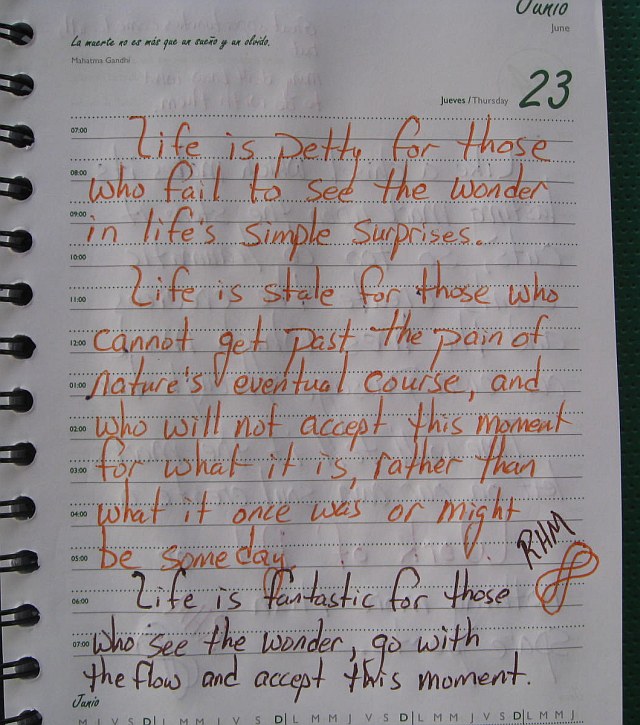 Junio
June
La muerte no es más que un sueño y un olvido.
Mahatma Gandhi
Jueves / Thursday 23
07:00 Life is petty for those
08:00 who fail to see the wonder
09:00 in life's simple surprises.
10:00
11:00 Life is stale for those who
12:00 cannot get past the pain of
01:00 nature's eventual course, and
02:00 who will not accept this moment
03:00 for what it is, rather than
04:00 what it once was or might
05:00 be someday.
RHM
06:00 Life is fantastic for those
07:00 who see the wonder, go with
the flow and accept this moment.
Junio
M J V S D L M M J V S D L M M J V S D L M M J